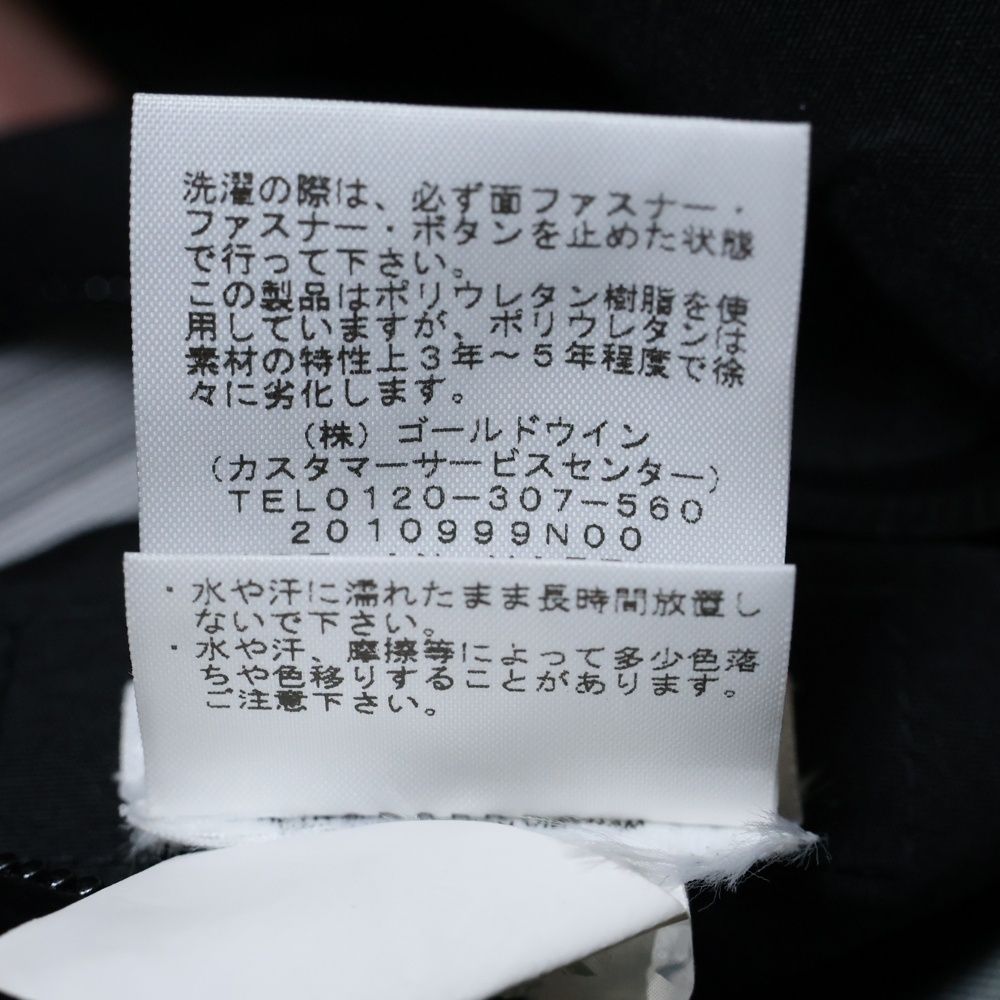 洗濯の際は、必ず面ファスナー・
ファスナー・ボタンを止めた状態
で行って下さい。
この製品はポリウレタン樹脂を使
用していますが、ポリウレタンは
素材の特性上3年～5年程度で徐
々に劣化します。
(株) ゴールドウイン
(カスタマーサービスセンター)
TEL0120-307-560
2010999N00
・水や汗に濡れたまま長時間放置し
ないで下さい。
・水や汗、摩擦等によって多少色落
ちや色移りすることがあります。
ご注意下さい。